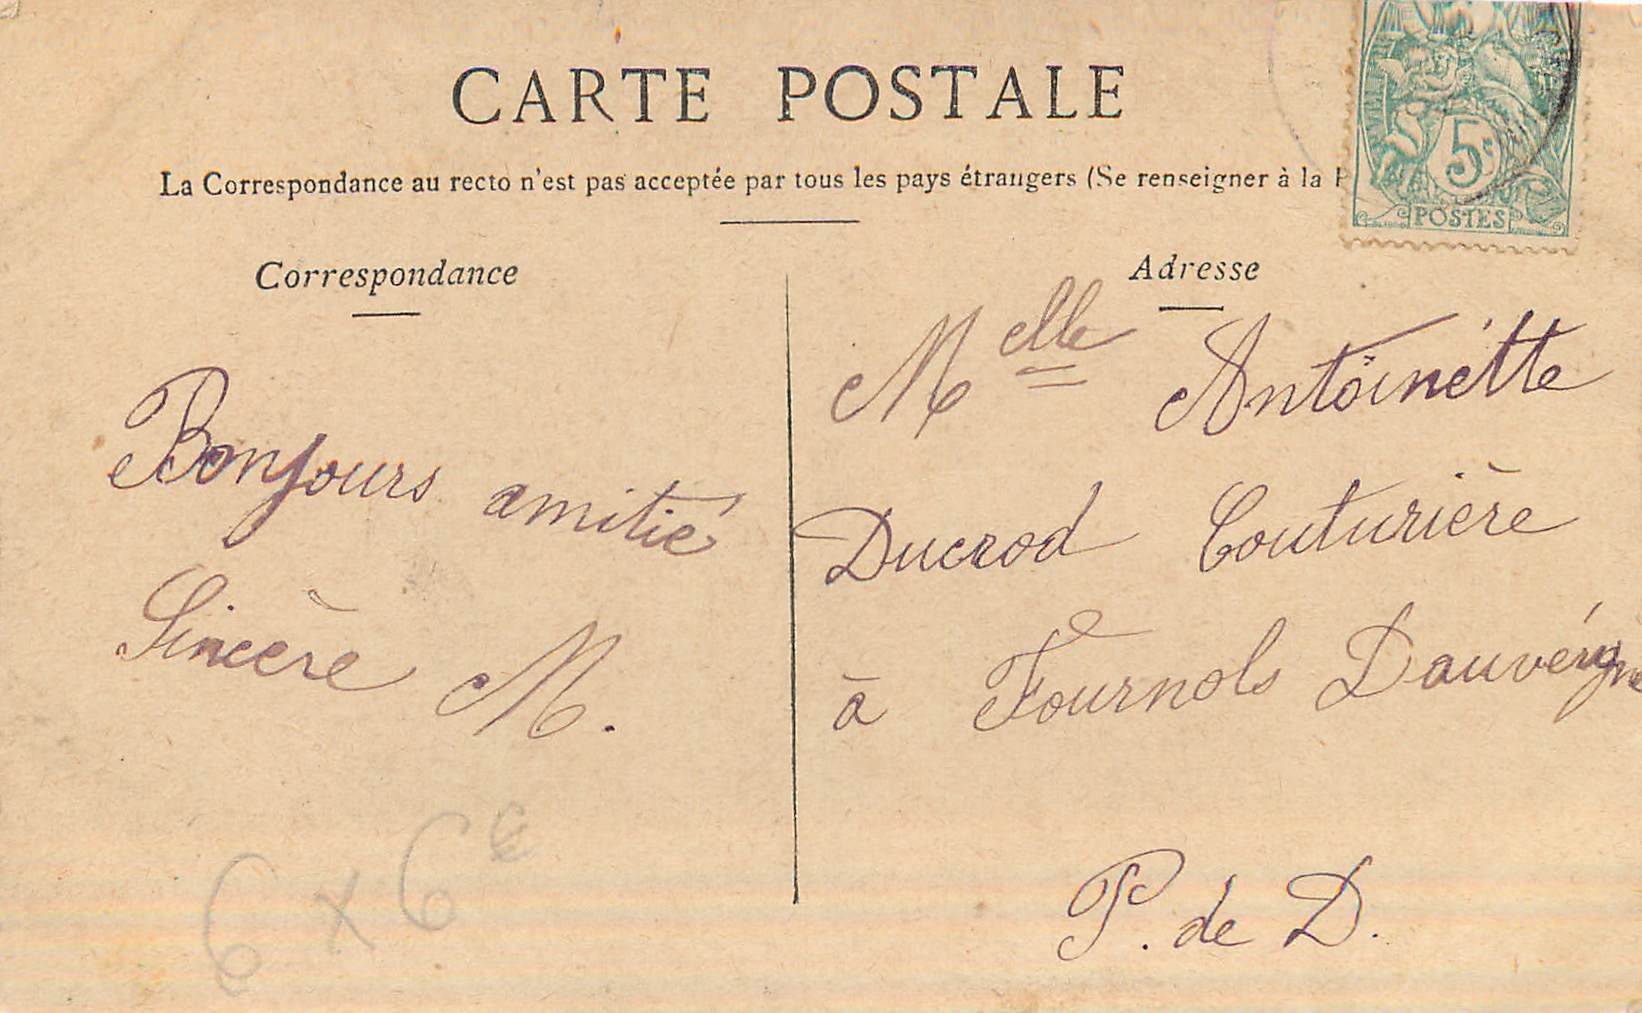 CARTE POSTALE
La Correspondance au recto n'est pas acceptée par tous les pays étrangers (Se renseigner à la
5c
POSTES
Correspondance
Adresse
Bonjours amitié
Sincère M.
Melle Antoinétte
Ducrod Couturière
à Fournols Dauvérgne
P. de D.
6 x 6 €